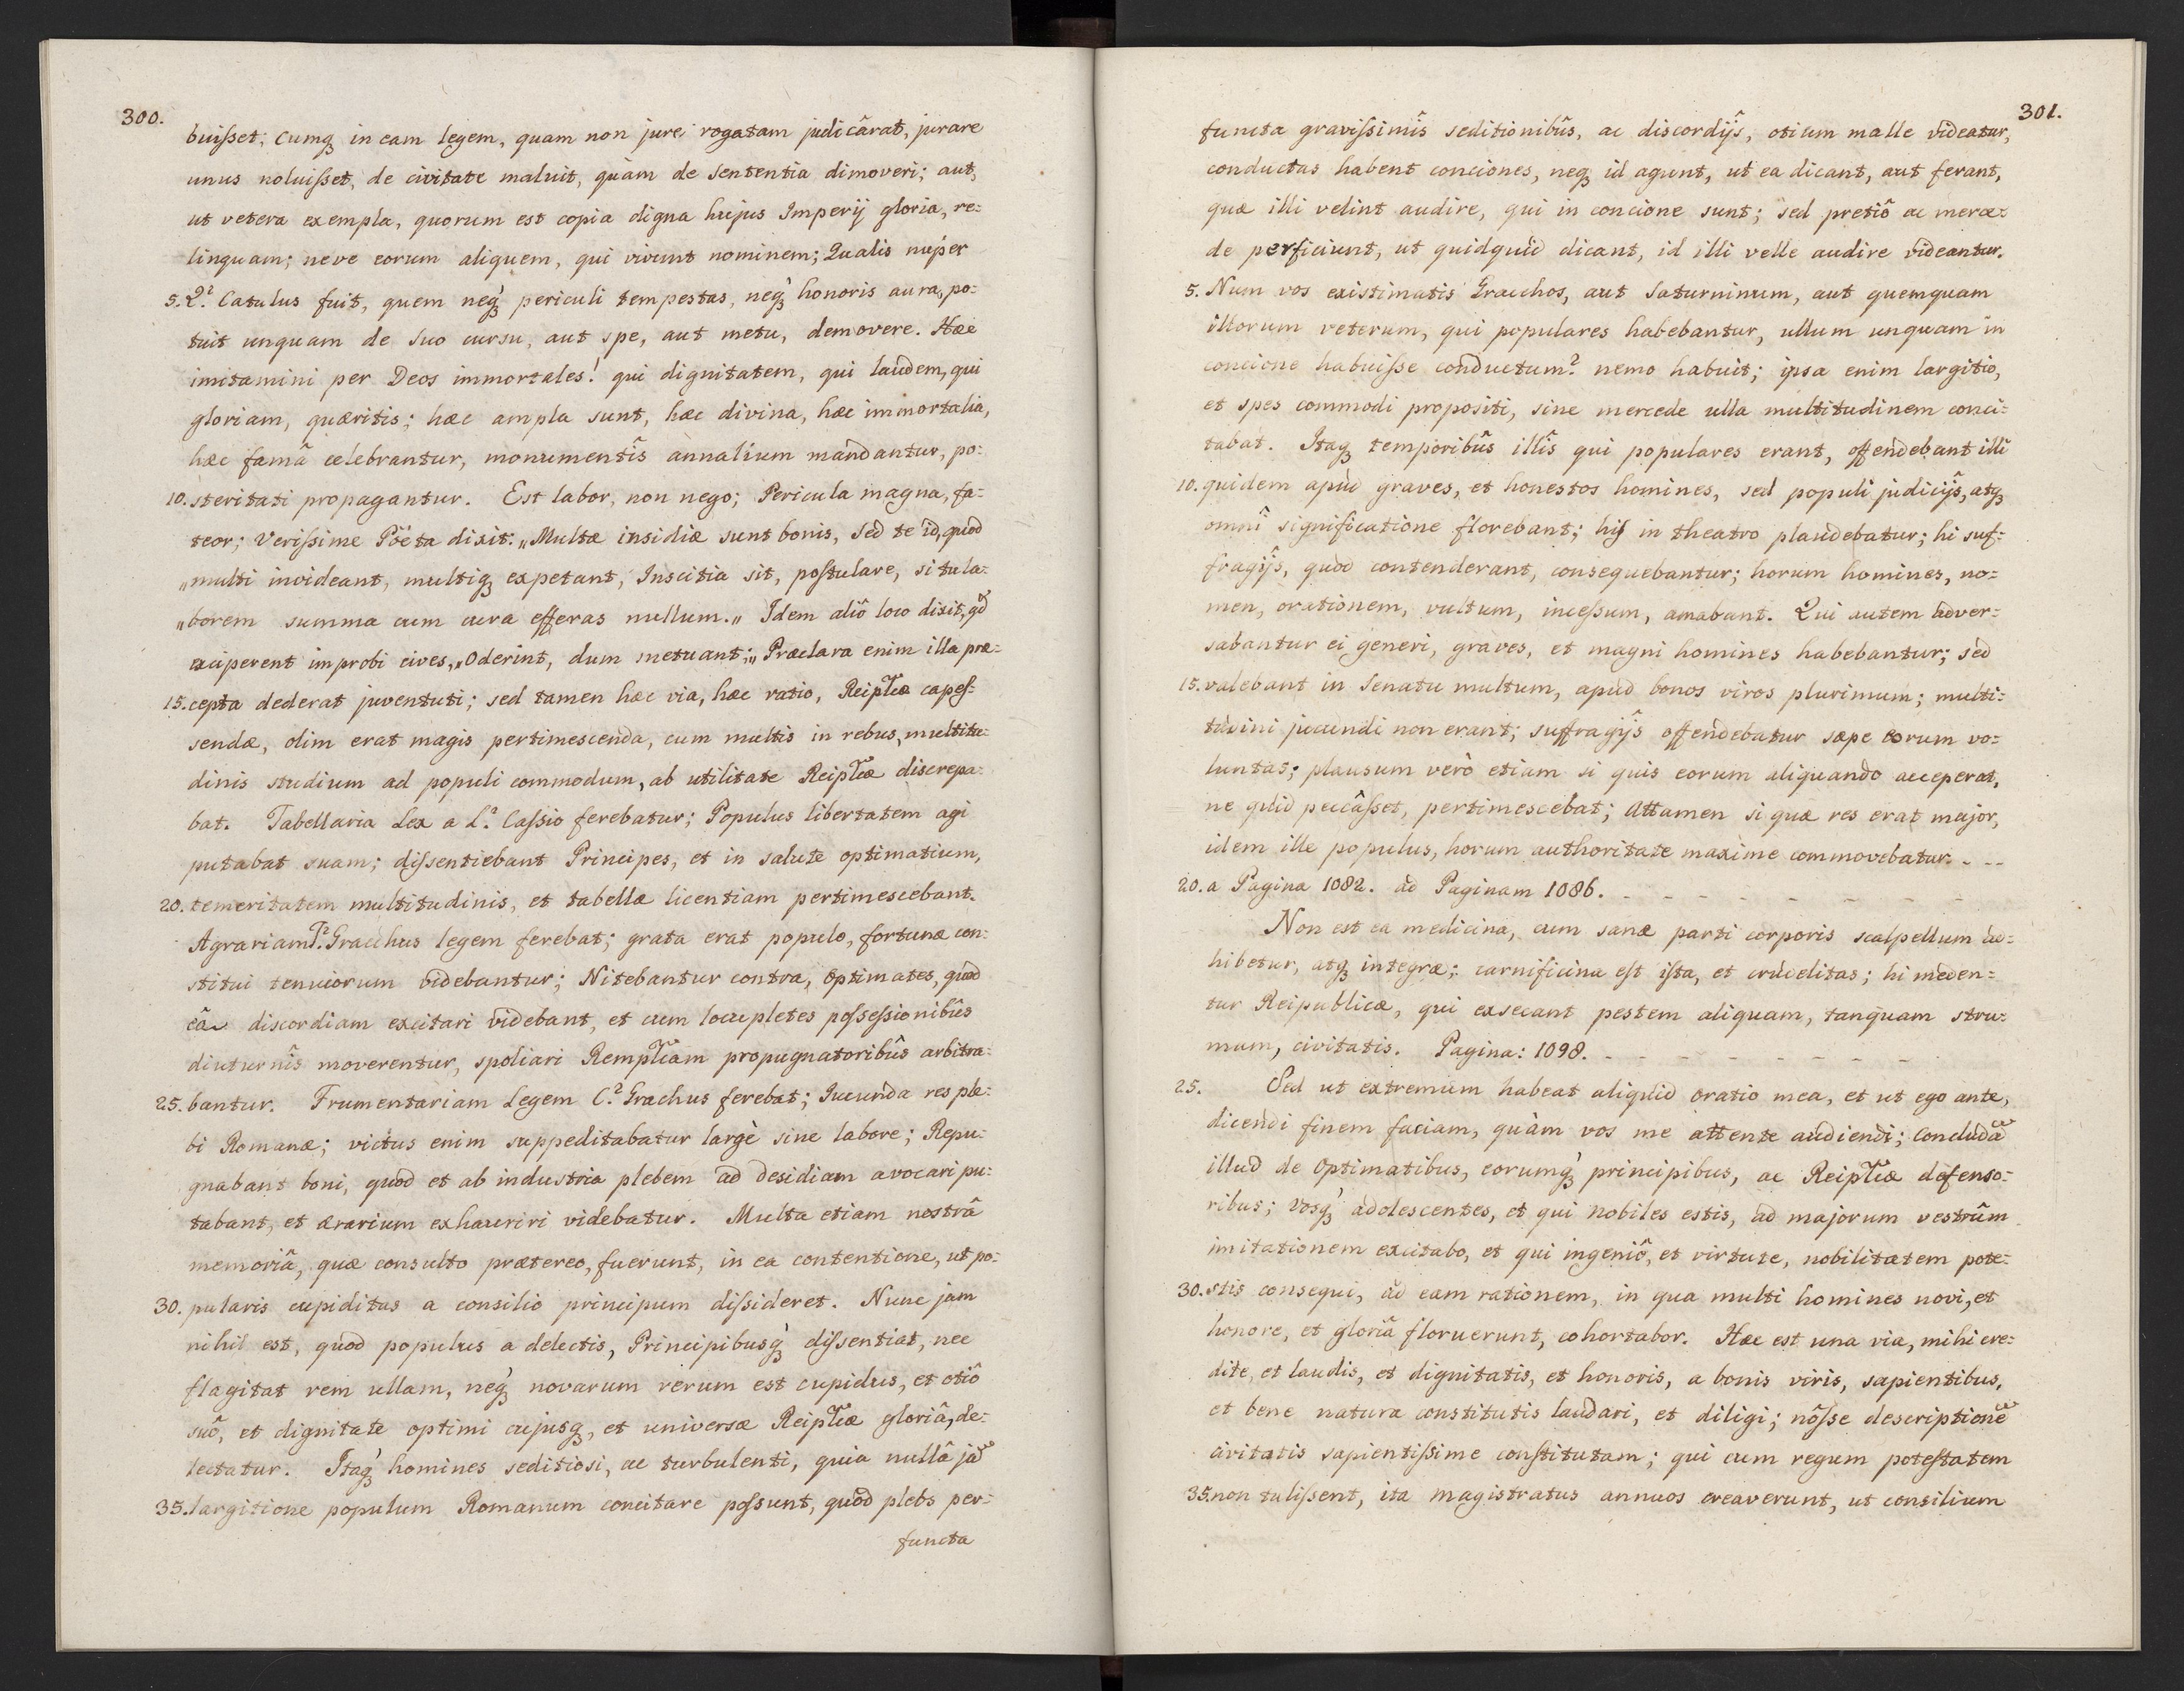 300.
buiſset; Cumq; in eam legem, quam non jure rogatam judicârat, jurare
unus noluiſset, de civitate maluit, quàm de Sententia dimoveri; aut,
ut vetera exempla, quorum est copia digna hujus Imperij gloria, re=
linquam; neve eorum aliquem, qui vivunt nominem; Qualis nuper
5. Q.s Catulus fuit, quem neq; periculi tempestas, neq; honoris aura, po=
tuit unquam de Suo cursu, aut spe, aut metu, demovere. Hæc
imitamini per Deos immortales! qui dignitatem, qui laudem, qui
gloriam, quæritis; hæc ampla sunt, hæc divina, hæc immortalia,
hæc famâ celebrantur, monumentîs annalium mandantur, po=
10. steritati propagantur. Est labor, non nego; Pericula magna, fa=
teor; Veriſsime Pöeta dixit: „Multæ insidiæ sunt bonis, Sed te id, quod
„multi invideant, multiq; expetant, Inscitia sit, poſtulare, si tu la=
„borem summa cum cura efferas nullum.„ Idem aliô loco dixit, qd
exciperent improbi cives, „Oderint, dum metuant;„ Præclara enim illa præ=
15. cepta dederat juventuti; sed tamen hæc via, hæc ratio, Reiplicæ capeſ=
sendæ, olim erat magis pertimescenda, cum multis in rebus, multitu=
dinis studium ad populi commodum, ab utilitate Reiplicæ discrepa=
bat. Tabellaria Lex a L.o Caſsio ferebatur; Populus libertatem agi
putabat suam; diſsentiebant Principes, et in salute optimatium,
20. temeritatem multitudinis, et tabellæ licentiam pertimescebant.
Agrariam T.s Gracchus legem ferebat; grata erat populo, fortunæ con=
stitui tenuiorum videbantur; Nitebantur contra, Optimates, quod
eâ discordiam excitari videbant, et cum locupletes poſseſsionibûs
diuturnîs moverentur, spoliari Remplicam propugnatoribûs arbitra=
25. bantur. Frumentariam Legem C.s Grachus ferebat; Jucunda res ple=
bi Romanæ; victus enim suppeditabatur largè sine labore; Repu=
gnabant boni, quod et ab industria plebem ad desidiam avocari pu=
tabant, et ærarium exhauriri videbatur. Multa etiam nostrâ
memoriâ, quæ consulto prætereo, fuerunt, in ea contentione, ut po=
30. pularis cupiditas a consilio principum diſsideret. Nunc jam
nihil est, quod populus a delectis, Principibusq; diſsentiat, nec
flagitat rem ullam, neq; novarum rerum est cupidus, et otiô
suô, et dignitate optimi cujusq;, et universæ Reiplicæ gloriâ, de=
lectatur. Itaq; homines seditiosi, ac turbulenti, quia nullâ jã
35. largitione populum Romanum concitare poſsunt, quòd plebs per=
functa
301.
functa graviſsimîs seditionibûs, ac discordijs, otium malle videatur,
conductas habent conciones, neq; id agunt, ut ea dicant, aut ferant,
quæ illi velint audire, qui in concione sunt; sed pretiô ac merce=
de perficiunt, ut quidquid dicant, id illi velle audire videantur.
5. Num vos existimatis Gracchos, aut Saturninum, aut quemquam
illorum veterum, qui populares habebantur, ullum unquam in
concione habuiſse conductum? nemo habuit; ipsa enim largitio,
et spes commodi propositi, sine mercede ulla multitudinem conci=
tabat. Itaq; temporibûs illîs qui populares erant, offendebant illi
10. quidem apud graves, et honestos homines, sed populi judicijs, atq;
omni significatione florebant; his in theatro plaudebatur; hi suf=
fragijs, quod contenderant, consequebantur; horum homines, no=
men, orationem, vultum, inceſsum, amabant. Qui autem adver=
sabantur ei generi, graves, et magni homines habebantur; sed
15. valebant in Senatu multum, apud bonos viros plurimum; multi=
tudini jucundi non erant; suffragijs offendebatur sæpe eorum vo=
luntas; plausum verò etiam si quis eorum aliquando acceperat,
ne quid peccâſset, pertimescebat; Attamen si quæ res erat major,
idem ille populus, horum authoritate maxime commovebatur. _ _ _
20. a Pagina 1082. ad Paginam 1086. _ _ _ _ _ _ _ _
Non est ea medicina, cum sanæ parti corporis scalpellum ad=
hibetur, atq; integræ; carnificina eſt iſta, et crudelitas; hi meden=
tur Reipublicæ, qui exsecant pestem aliquam, tanquam stru=
mum, civitatis. Pagina: 1098. _ _ _ _ _ _ _ _
25. Sed ut extremum habeat aliquid oratio mea, et ut ego ante,
dicendi finem faciam, quàm vos me attente audiendi; Concludã
illud de Optimatibus, eorumq; principibus, ac Reiplicæ defenso=
ribus; vosq; adolescentes, et qui nobiles estis, ad majorum vestrûm
imitationem excitabo, et qui ingeniô, et virtute, nobilitatem pote=
30. stis consequi, ad eam rationem, in qua multi homines novi, et
honore, et gloriâ floruerunt, cohortabor. Hæc est una via, mihi cre=
dite, et laudis, et dignitatis, et honoris, a bonis viris, sapientibus,
et bene natura constitutis laudari, et diligi; nôſse descriptionẽ
civitatis sapientiſsime conſtitutam; qui cum regum poteſtatem
35. non tuliſsent, ita magistratus annuos creaverunt, ut consilium